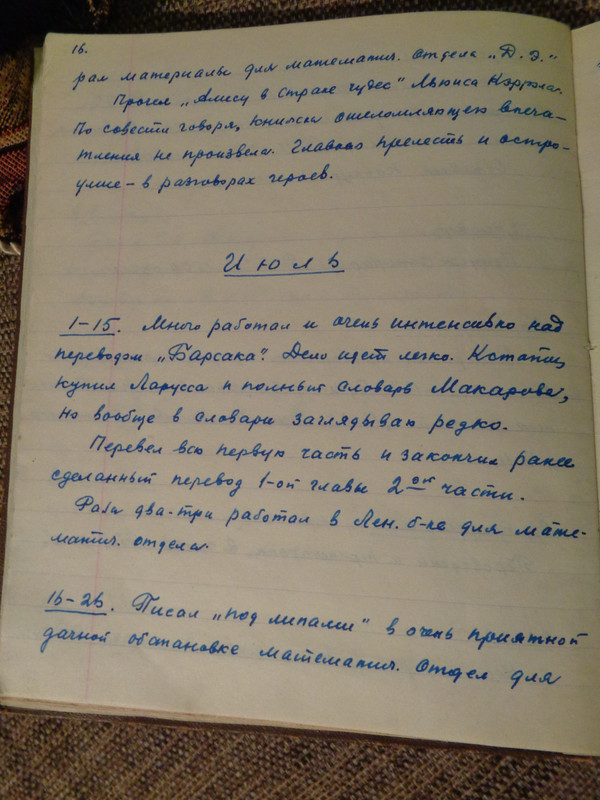 16.
рал материалы для математич. отдела „Д. Э.“
Прочел „Алису в стране чудес“ Льюиса Кэррола.
По совести говоря, книжка ошеломляющего впеча-
тления не произвела. Главная прелесть и остро-
умие – в разговорах героев.
Июль
1–15. Много работал и очень интенсивно над
переводом „Барсака“. Дело идет легко. Кстати,
купил Ларусса и полный словарь Макарова,
но вообще в словари заглядываю редко.
Перевел всю первую часть и закончил ранее
сделанный перевод 1-ой главы 2ой части.
Раза два-три работал в Лен. б-ке для мате-
матич. отдела.
16–26. Писал „под липами“ в очень приятной
дачной обстановке математич. отдел для